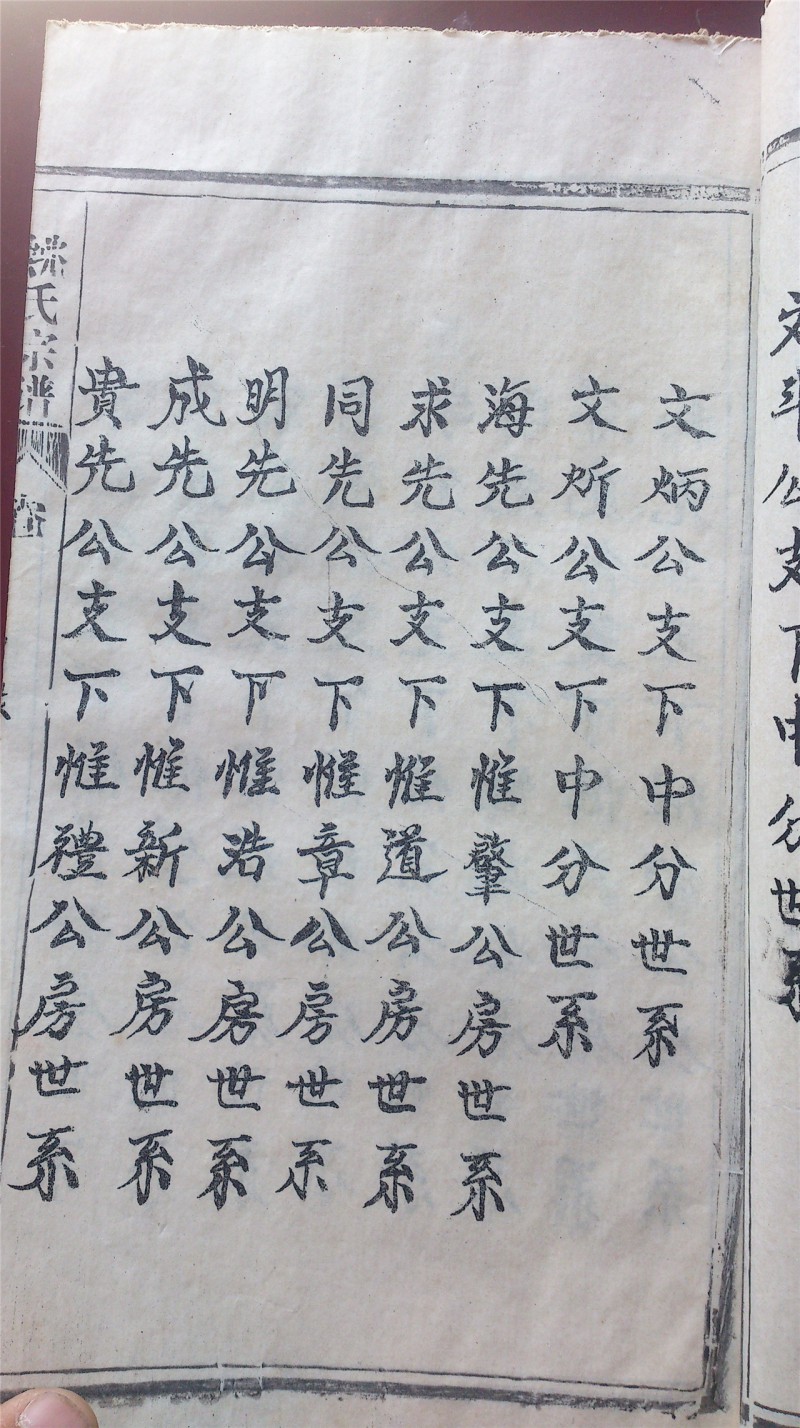 文斗公支下中分世系
文炳公支下中分世系
文炘公支下中分世系
海先公支下惟肇公房世系
求先公支下惟道公房世系
同先公支下惟章公房世系
明先公支下惟浩公房世系
成先公支下惟新公房世系
貴先公支下惟禮公房世系
氏宗譜